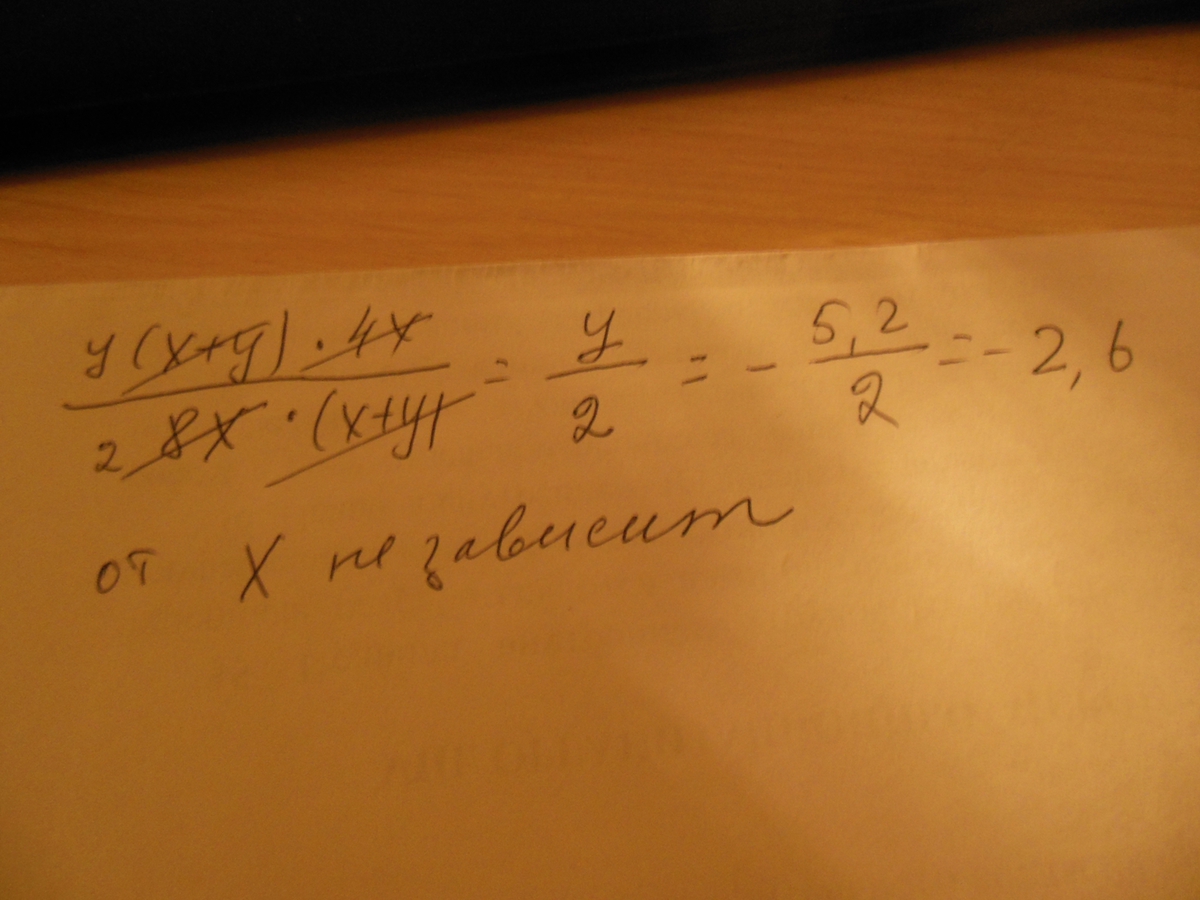 y(x+y)·4x / 2 8x·(x+y) = y/2 = - 5,2/2 = - 2,6
от x не зависит